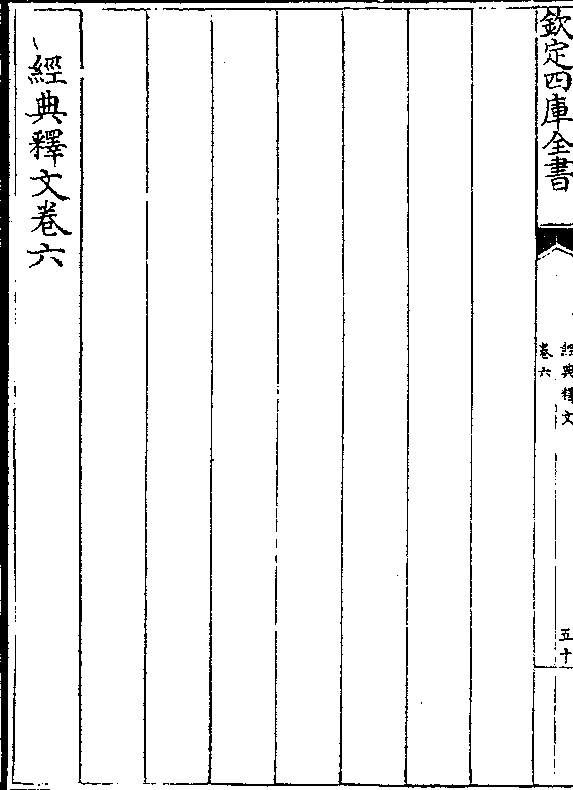 欽定四庫全書
經典釋文
卷六
五十
經典釋文卷六